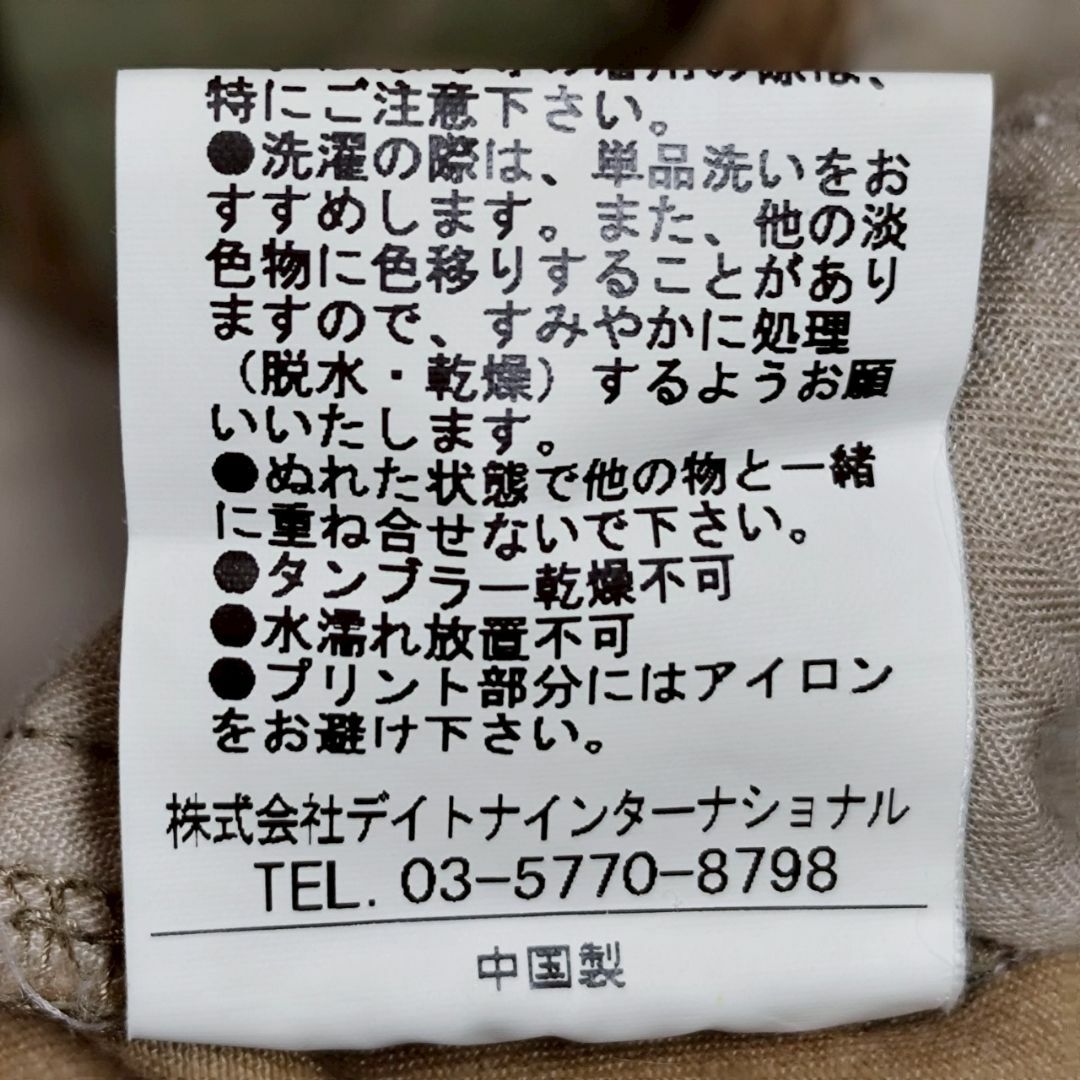 特にご注意下さい。
●洗濯の際は、単品洗いをお
すすめします。また、他の淡
色物に色移りすることがあり
ますので、すみやかに処理
（脱水・乾燥）するようお願
いいたします。
●ぬれた状態で他の物と一緒
に重ね合せないで下さい。
●タンブラー乾燥不可
●水濡れ放置不可
●プリント部分にはアイロン
をお避け下さい。
株式会社デイトナインターナショナル
TEL. 03-5770-8798
中国製